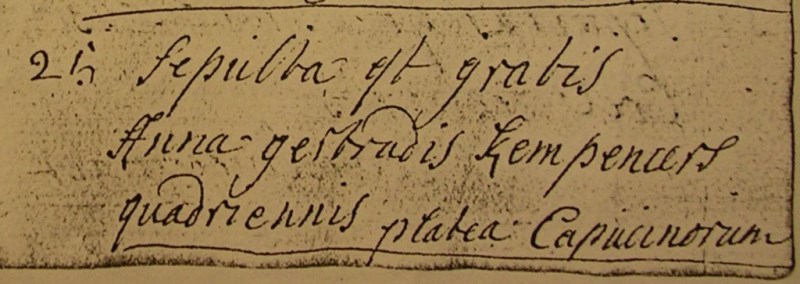 25 sepulta est gratis
Anna gertrudis Kempeners
quadriennis platea Capucinorum